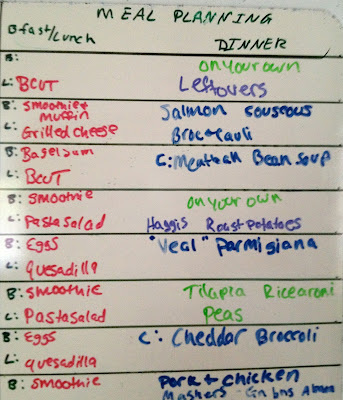 MEAL PLANNING
Bfast/Lunch DINNER
B: on your own
L: BCUT Leftovers
B: Smoothie + Salmon couscous
muffin
L: Grilled cheese Broc + Cauli
B: Bagel Jam C: Meatball Bean Soup
L: BCUT
B: Smoothie on your own
L: Pasta Salad Haggis Roast Potatoes
B: Eggs "Veal" Parmigiana
L: quesadilla
B: Smoothie Tilapia Ricearoni
L: Pasta Salad Peas
B: Eggs C: Cheddar Broccoli
L: quesadilla
B: Smoothie Pork + Chicken
Mashers Grn bns